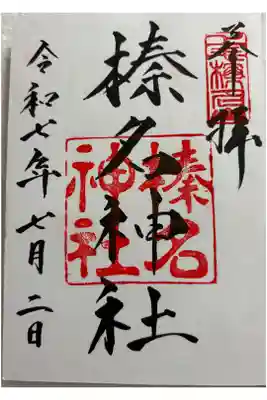 奉拝
榛名神社
榛名神社
令和七年七月二日